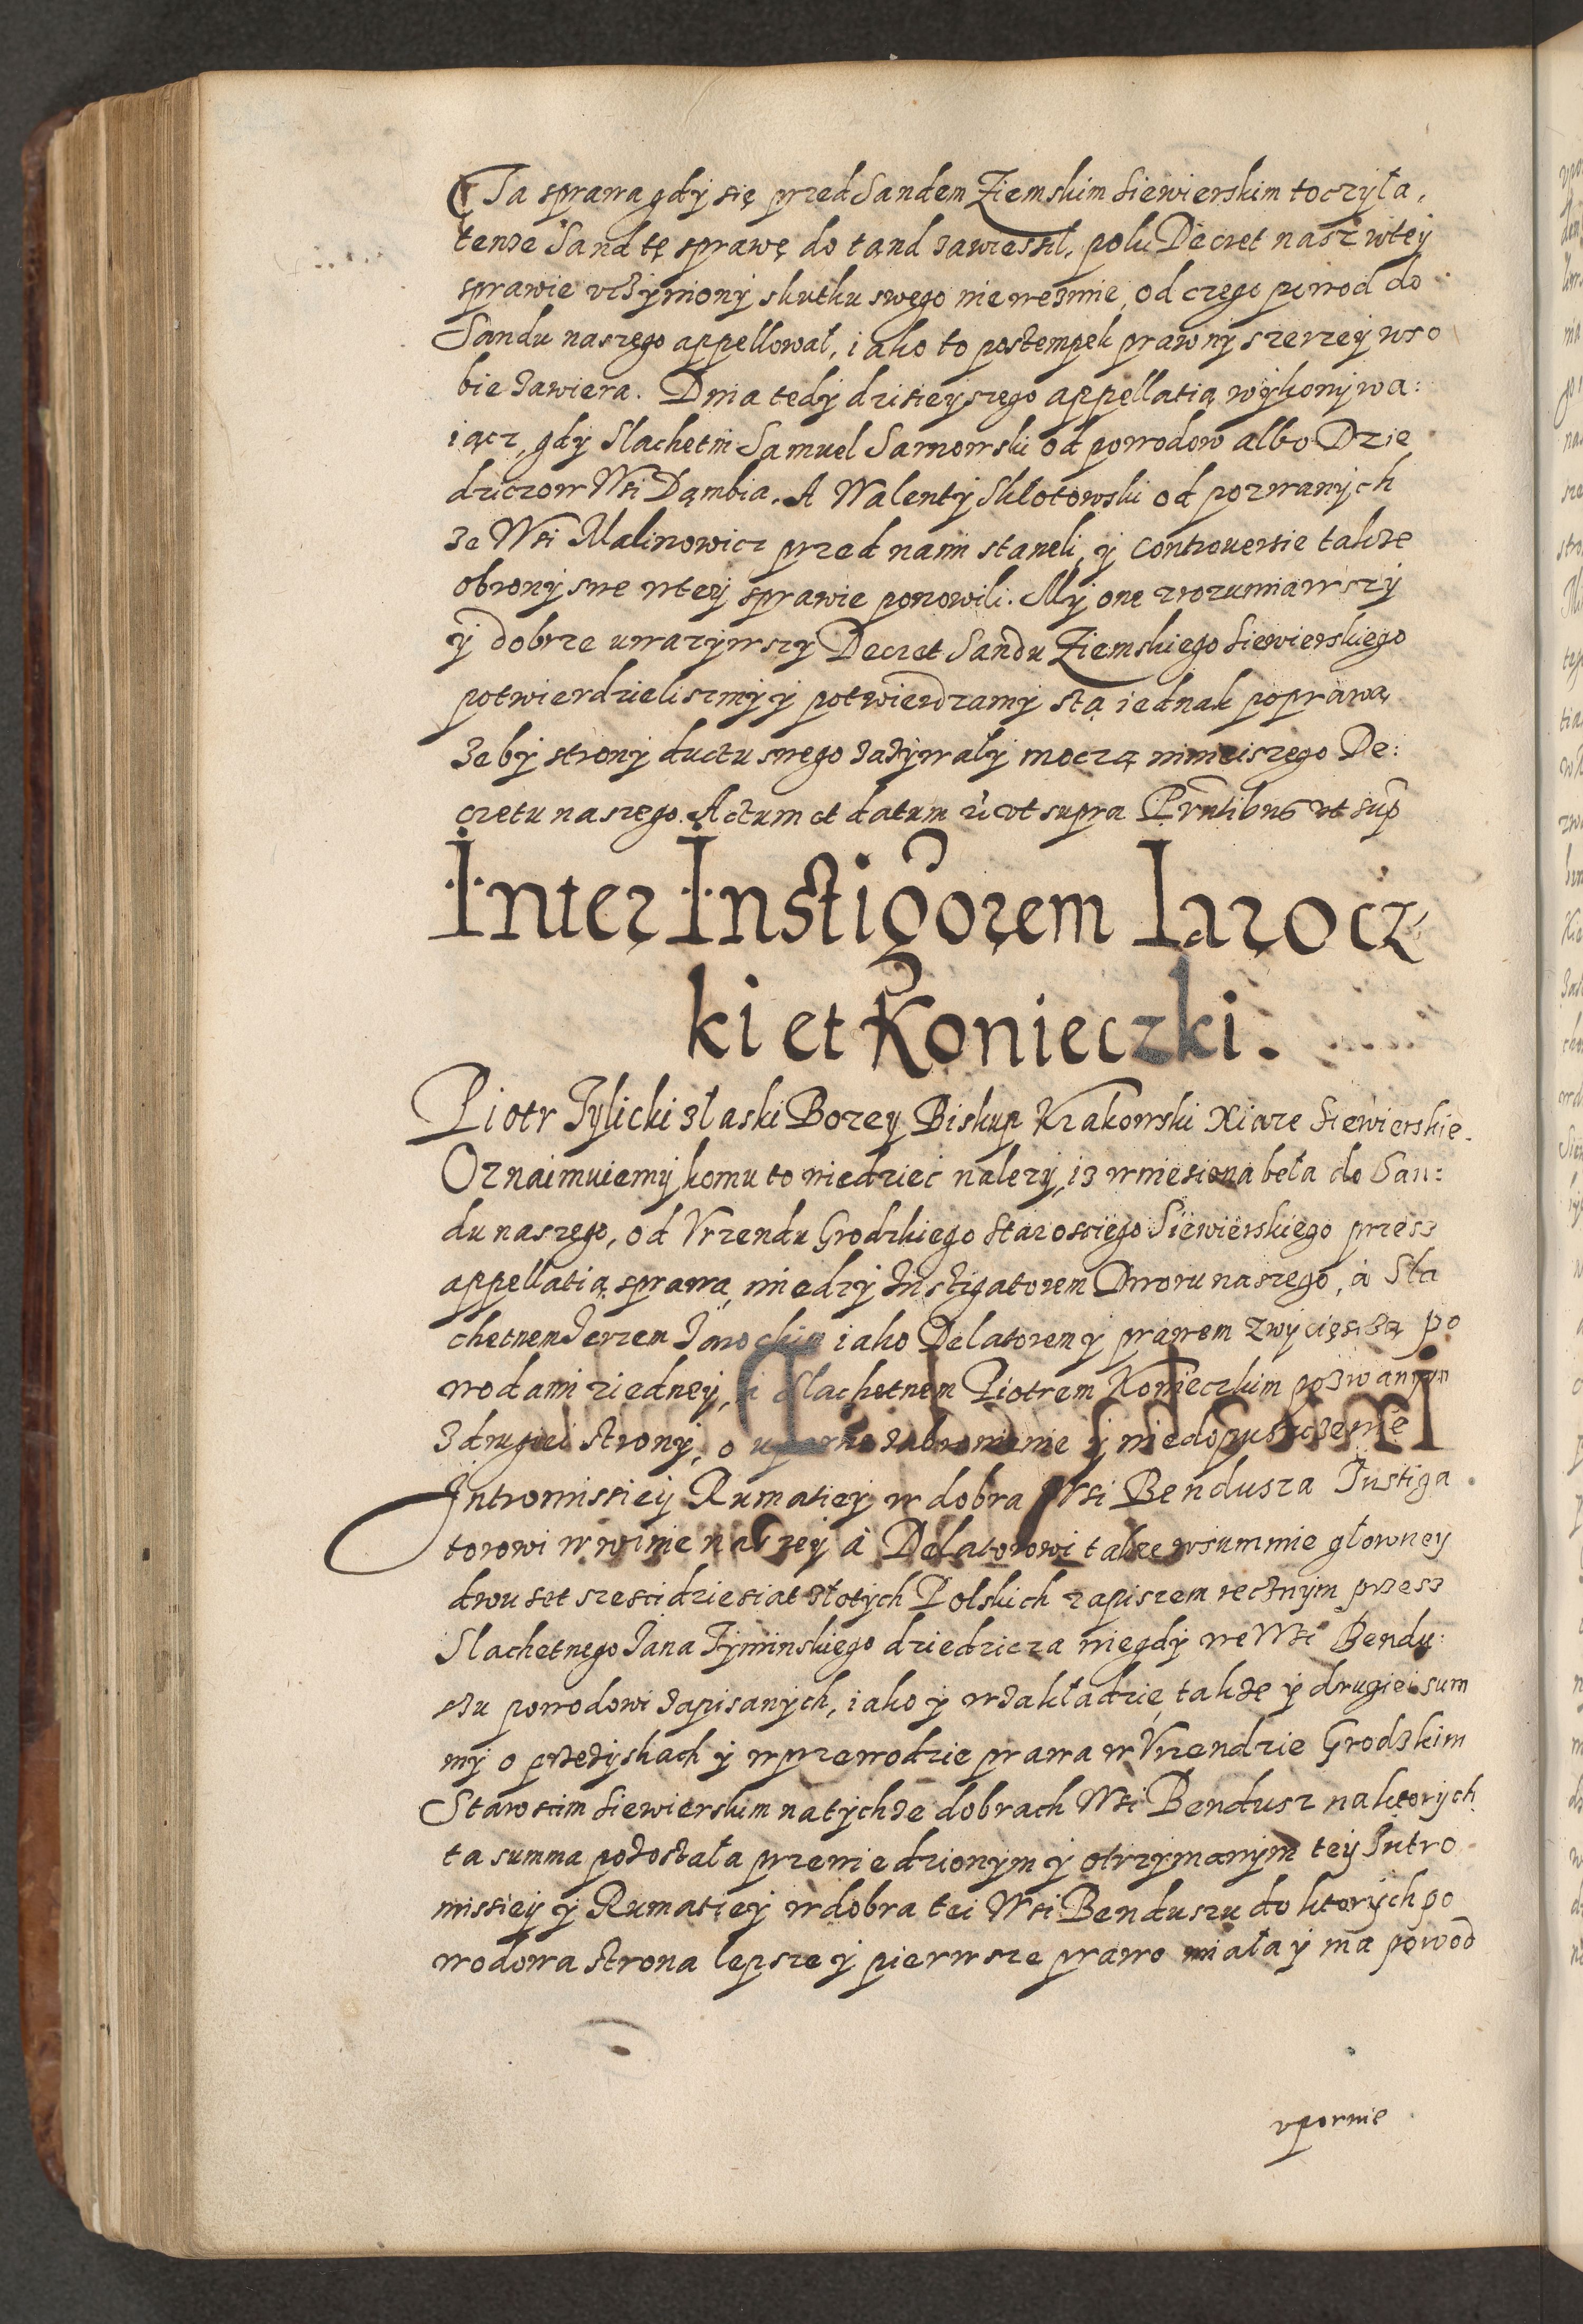 Ta sprawa gdy się przed Sandem Ziemskim Siewierskim toczyła,
tenze Sand tę sprawę do tand zawiessił, poki Decret nasz wtey
sprawie vczyniony skutku swego nie wezmie, od czego powod do
Sandu naszego appellował, iako to postempek prawny szerzey wso
bie zawiera. Dnia tedy dzisieyszego appellatią wykonywa:
iącz, gdy Slachetni Samuel Sarnowski od powodow albo Dzie
dziczow Wsi Dąmbia. A Walenty Sklotowski od pozwanych
ze Wsi Malinowicz przed nami staneli, y Controuersie takze
obrony swe wtey sprawie ponowili. My one zrozumiawszy
y dobrze uwazywszy Decret Sandu Ziemskiego Siewierskiego
potwierdzieliszmy y potwierdzamy stą iednak poprawą
zeby strony ductu swego zazywały moczą ninieiszego De:
cretu naszego. Actum et datum vt supra Prntibus vt sup
Inter Instigorem Jarocz
ki et Konieczki.
Piotr Tylicki złaski Bozey Biskup Krakowski Xiaze Siewierskie.
Oznaimuiemy komu to wiedzieć nalezy, iz wniesiona beła do San:
du naszego, od Vrzendu Grodzkiego Starosciego Siewierskiego przesz
appellatią sprawa, miedzy Instigatorem Dworu naszego, a Sla
chetnem Jerzem Jarockim iako Delatorem y prawem zwycięską po
wodami ziedney, i Slachetnem Piotrem Konieczkim pozwanym
zdrugiei strony, o uporne zabronienie y niedopuszczenie
Intromissiey Rumatiey w dobra Wsi Bendusza Instiga
torowi w winie naszey à Delatorowi takze wsummie głowney
dwu set szescidziesiat złotych Polskich zapiszem recznym przesz
Slachetnego Jana Tyminskiego dziedzicza niegdy we Wsi Bendu:
szu powodowi zapisanych, iako y wzakładzie, takze y drugiei sum
my o przezyskach y wprzewodzie prawa w Vrzendzie Grodzkim
Starostim Siewierskim natychze dobrach Wsi Bendusz naktorych
ta summa pozostała przewiedzionym y otrzymanym tey Intro
missiey y Rumatiey wdobra tei Wsi Benduszu do ktorych po
wodowa strona lepsze y pierwsze prawo miała y ma powod
vpornie